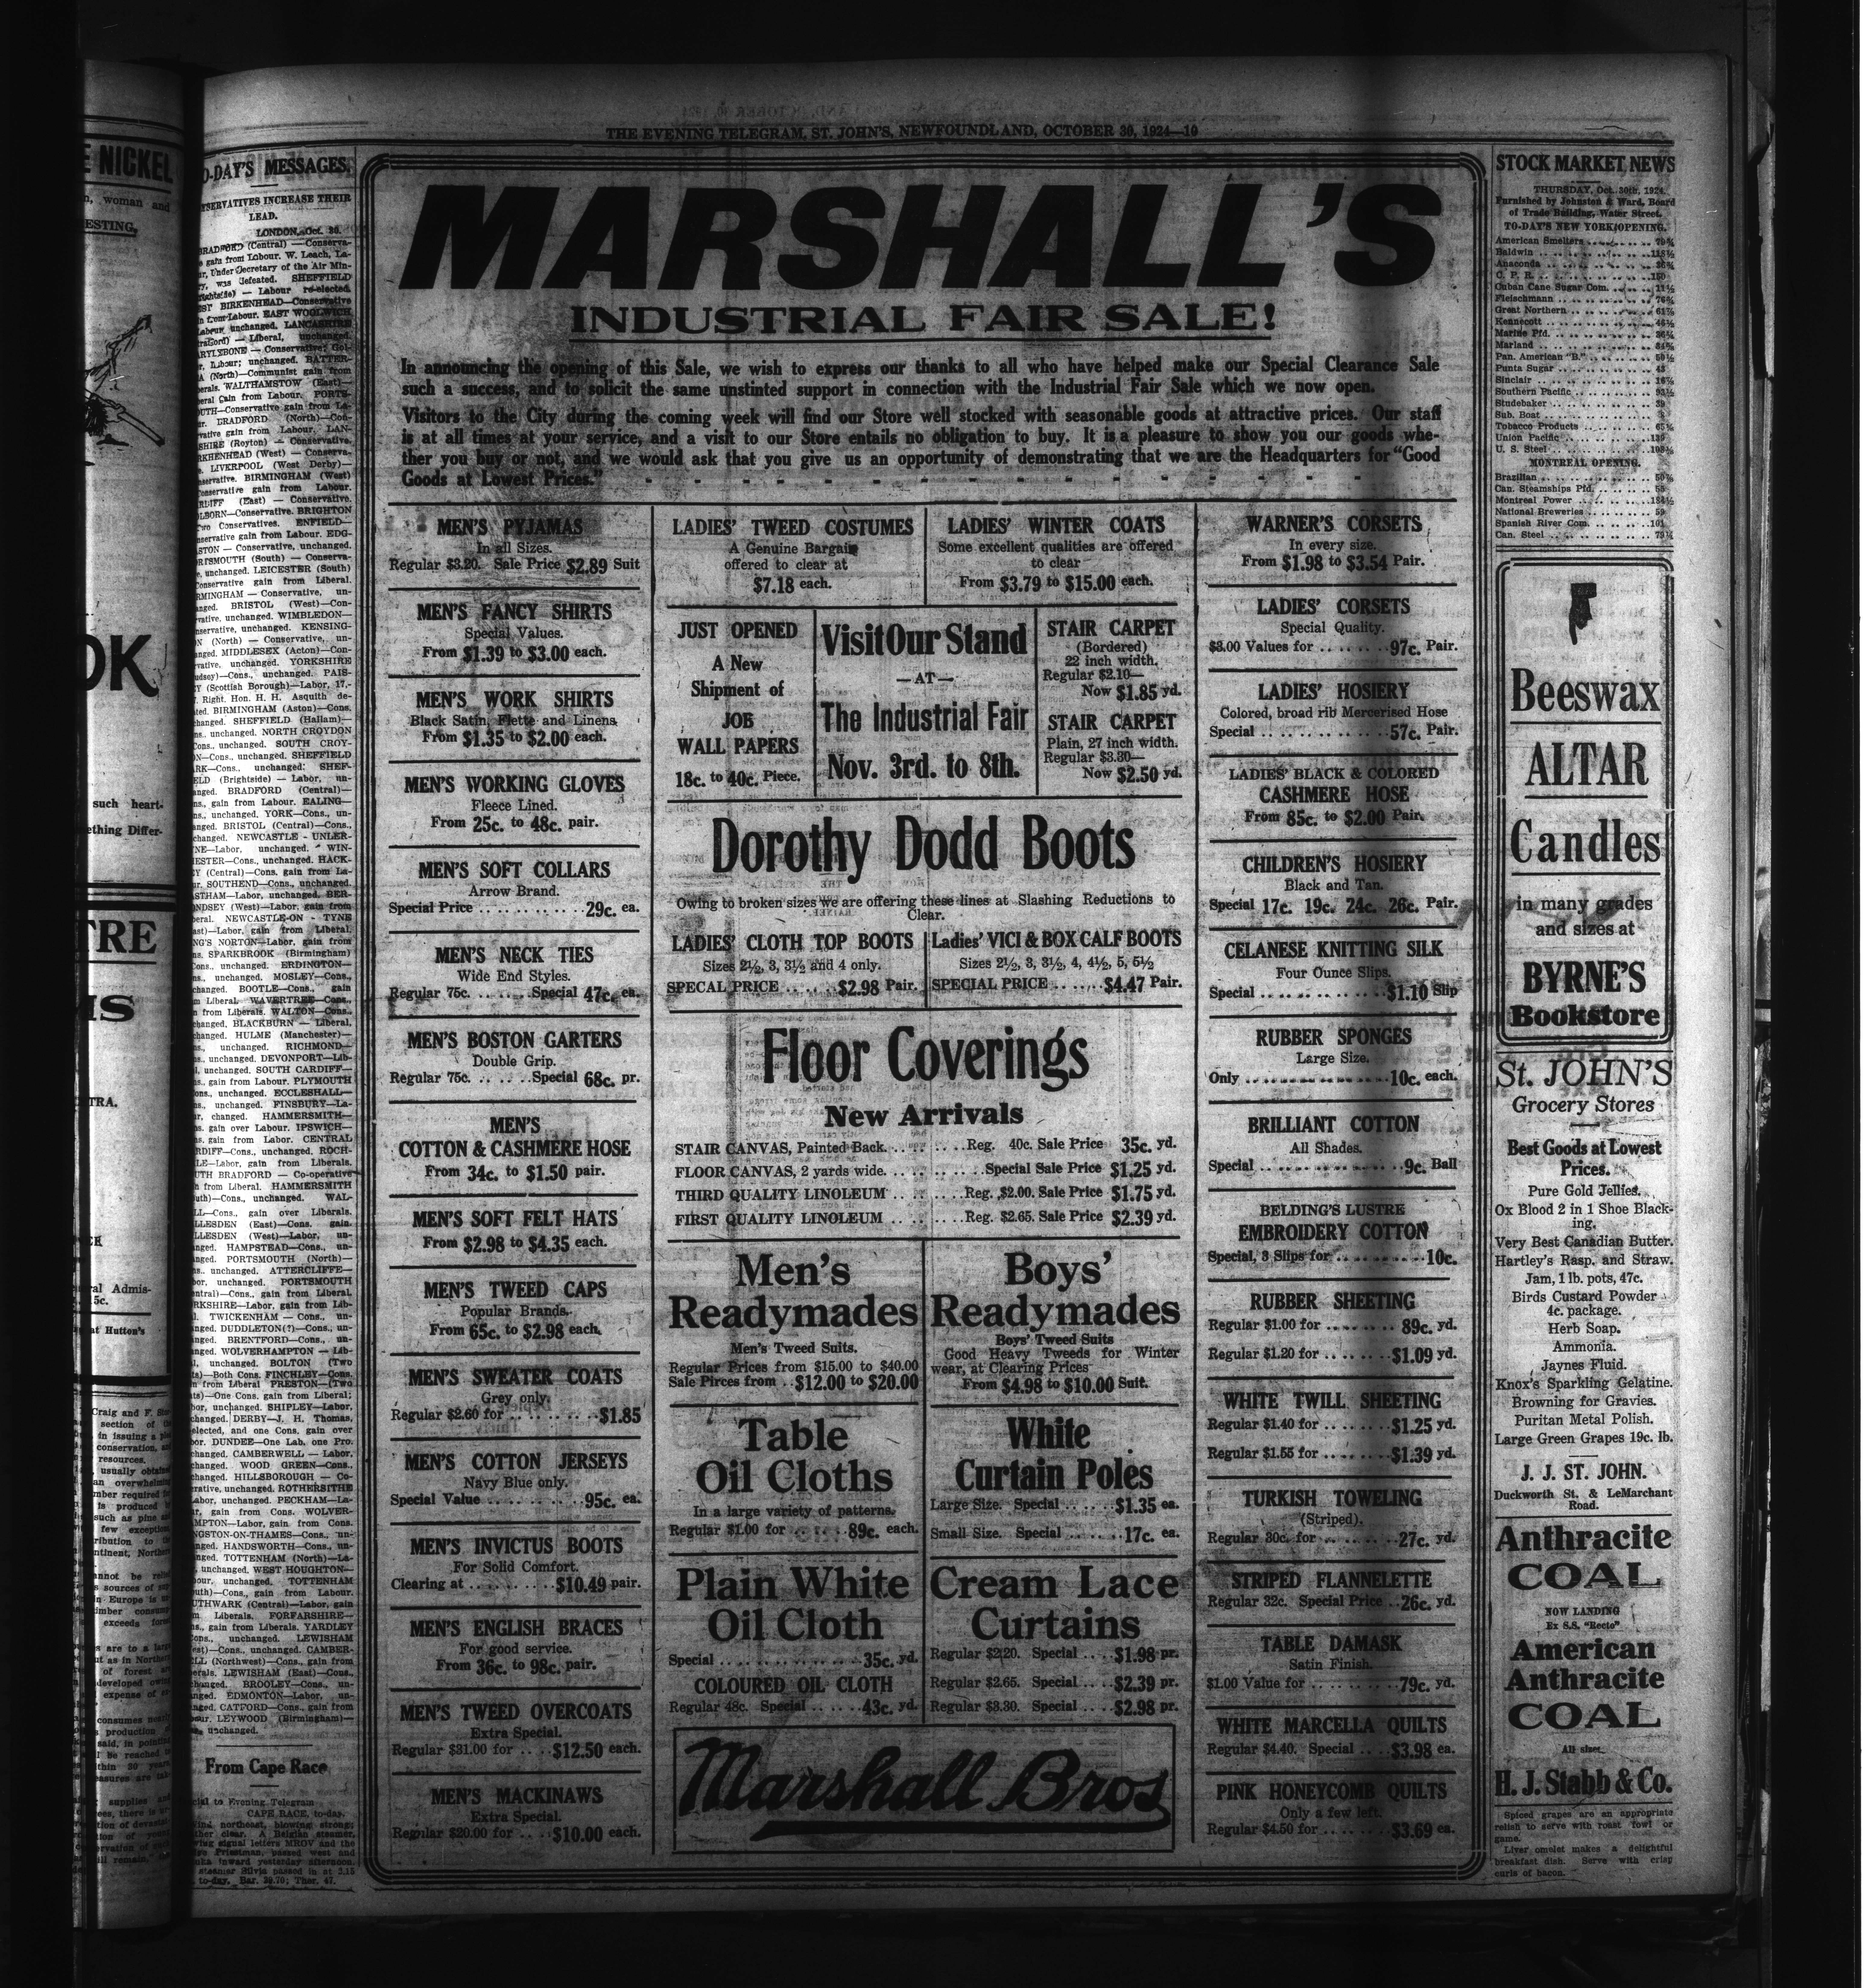 THE EVENING TELEGRAM, ST. JOHN'S, NEWFOUNDLAND, OCTOBER 30, 1924—10
E NICKEL
n, woman and
ESTING,
OK
such heart-
ething Differ-
TRE
IS
TRA.
ral Admis-
5c.
at Hutton's
O-DAY'S MESSAGES.
NSERVATIVES INCREASE THEIR
LEAD.
LONDON, Oct. 30.
BRADFORD (Central) — Conserva-
gain from Labour. W. Leach, La-
ur, Under Secretary of the Air Min-
ry, was defeated. SHEFFIELD
rightside) — Labour re-elected.
EST BIRKENHEAD—Conservative
n from Labour. EAST WOOLWICH
Labour, unchanged. LANCASHIRE
traford) — Liberal, unchanged.
ARYLEBONE — Conservative; Gol-
r, Labour; unchanged. BATTER-
A (North)—Communist gain from
erals. WALTHAMSTOW (East)—
eral Gain from Labour. PORTS-
OUTH—Conservative gain from La-
ur. BRADFORD (North)—Con-
vative gain from Labour. LAN-
SHIRE (Royton) — Conservative.
RKENHEAD (West) — Conserva-
e. LIVERPOOL (West Derby)—
nservative. BIRMINGHAM (West)
Conservative gain from Labour.
RDIFF (East) — Conservative.
LBORN—Conservative. BRIGHTON
Two Conservatives. ENFIELD—
nservative gain from Labour. EDG-
STON — Conservative, unchanged.
RTSMOUTH (South) — Conserva-
e, unchanged. LEICESTER (South)
Conservative gain from Liberal.
RMINGHAM — Conservative, un-
anged. BRISTOL (West)—Con-
rvative, unchanged. WIMBLEDON—
nservative, unchanged. KENSING-
N (North) — Conservative, un-
anged. MIDDLESEX (Acton)—Con-
rvative, unchanged. YORKSHIRE
udsey)—Cons., unchanged. PAIS-
Y (Scottish Borough)—Labor, 17,-
. Right. Hon. H. H. Asquith de-
ted. BIRMINGHAM (Aston)—Cons.
changed. SHEFFIELD (Hallam)—
ns., unchanged. NORTH CROYDON
Cons., unchanged. SOUTH CROY-
N—Cons., unchanged. SHEFFIELD
ARK—Cons., unchanged. SHEF-
ELD (Brightside) — Labor, un-
anged. BRADFORD (Central)—
ns., gain from Labour. EALING—
ns., unchanged. YORK—Cons., un-
anged. BRISTOL (Central)—Cons.,
changed. NEWCASTLE - UNLER-
NE—Labor, unchanged. WIN-
ESTER—Cons., unchanged. HACK-
Y (Central)—Cons. gain from La-
ur. SOUTHEND—Cons., unchanged.
STHAM—Labor, unchanged. BER-
NDSEY (West)—Labor, gain from
beral. NEWCASTLE-ON - TYNE
ast)—Labor, gain from Liberal.
NG'S NORTON—Labor, gain from
ns. SPARKBROOK (Birmingham)
Cons., unchanged. ERDINGTON—
ns., unchanged. MOSLEY—Cons.,
changed. BOOTLE—Cons., gain
m Liberal. WAVERTREE—Cons.,
n from Liberals. WALTON—Cons.,
changed. BLACKBURN — Liberal,
changed. HULME (Manchester)—
ns., unchanged. RICHMOND—
ns., unchanged. DEVONPORT—Lib-
l, unchanged. SOUTH CARDIFF—
ns., gain from Labour. PLYMOUTH
ons., unchanged. ECCLESHALL—
ns., unchanged. FINSBURY—La-
ur, changed. HAMMERSMITH—
ns. gain over Labour. IPSWICH—
ns. gain from Labor. CENTRAL
RDIFF—Cons., unchanged. ROCH-
LE—Labor, gain from Liberals.
UTH BRADFORD — Co-operative
n from Liberal. HAMMERSMITH
uth)—Cons., unchanged. WAL-
LL—Cons., gain over Liberals.
LLESDEN (East)—Cons. gain.
LLESDEN (West)—Labor, un-
anged. HAMPSTEAD—Cons., un-
anged. PORTSMOUTH (North)—
ns., unchanged. ATTERCLIFFE—
bor, unchanged. PORTSMOUTH
entral)—Cons., gain from Liberal.
RKSHIRE—Labor, gain from Lib-
l. TWICKENHAM — Cons., un-
anged. DUDDLETON(?)—Cons., un-
anged. BRENTFORD—Cons., un-
anged. WOLVERHAMPTON — Lib-
l, unchanged. BOLTON (Two
ts)—Both Cons. FINCHLEY—Cons.
n from Liberal PRESTON—(Two
ts)—One Cons. gain from Liberal;
bor, unchanged. SHIPLEY—Labor,
changed. DERBY—J. H. Thomas,
elected, and one Cons. gain over
bor. DUNDEE—One Lab. one Pro.
changed. CAMBERWELL — Labor,
changed. WOOD GREEN—Cons.,
changed. HILLSBOROUGH — Co-
erative, unchanged. ROTHERSITHE
Labor, unchanged. PECKHAM—La-
ur, gain from Cons. WOLVER-
MPTON—Labor, gain from Cons.
NGSTON-ON-THAMES—Cons., un-
anged. HANDSWORTH—Cons., un-
anged. TOTTENHAM (North)—La-
, unchanged. WEST HOUGHTON—
bour, unchanged. TOTTENHAM
outh)—Cons., gain from Labour.
UTHWARK (Central)—Labor, gain
m Liberals. FORFARSHIRE—
ns., gain from Liberals. YARDLEY
Cons., unchanged. LEWISHAM
est)—Cons., unchanged. CAMBER-
LL (Northwest)—Cons., gain from
erals. LEWISHAM (East)—Cons.,
changed. BROOLEY—Cons., un-
anged. EDMONTON—Labor, un-
anged. CATFORD—Cons., gain from
our. LEYWOOD (Birmingham)—
unchanged.
From Cape Race
cial to Evening Telegram
CAPE RACE, to-day.
Wind northeast, blowing strong;
ther clear. A Belgian steamer,
wing signal letters MROV and the
Priestman, passed west and
inward yesterday afternoon.
steamer Silvia passed in at 2.15
to-day. Bar. 29.70; Ther. 47.
MARSHALL'S
INDUSTRIAL FAIR SALE!
In announcing the opening of this Sale, we wish to express our thanks to all who have helped make our Special Clearance Sale
such a success, and to solicit the same unstinted support in connection with the Industrial Fair Sale which we now open.
Visitors to the City during the coming week will find our Store well stocked with seasonable goods at attractive prices. Our staff
is at all times at your service, and a visit to our Store entails no obligation to buy. It is a pleasure to show you our goods whe-
ther you buy or not, and we would ask that you give us an opportunity of demonstrating that we are the Headquarters for "Good
Goods at Lowest Prices."
MEN'S PYJAMAS
In all Sizes.
Regular $3.20. Sale Price $2.89 Suit
MEN'S FANCY SHIRTS
Special Values.
From $1.39 to $3.00 each.
MEN'S WORK SHIRTS
Black Satin, Flette and Linens
From $1.35 to $2.00 each.
MEN'S WORKING GLOVES
Fleece Lined.
From 25c. to 48c. pair.
MEN'S SOFT COLLARS
Arrow Brand.
Special Price .......... 29c. ea.
MEN'S NECK TIES
Wide End Styles.
Regular 75c. ...... Special 47c. ea.
MEN'S BOSTON GARTERS
Double Grip.
Regular 75c. ...... Special 68c. pr.
MEN'S
COTTON & CASHMERE HOSE
From 34c. to $1.50 pair.
MEN'S SOFT FELT HATS
From $2.98 to $4.35 each.
MEN'S TWEED CAPS
Popular Brands.
From 65c. to $2.98 each.
MEN'S SWEATER COATS
Grey only.
Regular $2.60 for ........ $1.85
MEN'S COTTON JERSEYS
Navy Blue only.
Special Value ......... 95c. ea.
MEN'S INVICTUS BOOTS
For Solid Comfort.
Clearing at ......... $10.49 pair.
MEN'S ENGLISH BRACES
For good service.
From 36c. to 98c. pair.
MEN'S TWEED OVERCOATS
Extra Special.
Regular $31.00 for .... $12.50 each.
MEN'S MACKINAWS
Extra Special.
Regular $20.00 for .... $10.00 each.
LADIES' TWEED COSTUMES
A Genuine Bargain
offered to clear at
$7.18 each.
LADIES' WINTER COATS
Some excellent qualities are offered
to clear
From $3.79 to $15.00 each.
JUST OPENED
A New
Shipment of
JOB
WALL PAPERS
18c. to 40c. Piece.
Visit Our Stand
—AT—
The Industrial Fair
Nov. 3rd. to 8th.
STAIR CARPET
(Bordered)
22 inch width.
Regular $2.10—
Now $1.85 yd.
STAIR CARPET
Plain, 27 inch width.
Regular $3.30—
Now $2.50 yd.
Dorothy Dodd Boots
Owing to broken sizes we are offering these lines at Slashing Reductions to
Clear.
LADIES' CLOTH TOP BOOTS
Sizes 2½, 3, 3½ and 4 only.
SPECAL PRICE ...... $2.98 Pair.
Ladies' VICI & BOX CALF BOOTS
Sizes 2½, 3, 3½, 4, 4½, 5, 5½
SPECIAL PRICE ...... $4.47 Pair.
Floor Coverings
New Arrivals
STAIR CANVAS, Painted Back. ........ Reg. 40c. Sale Price 35c. yd.
FLOOR CANVAS, 2 yards wide. ........ Special Sale Price $1.25 yd.
THIRD QUALITY LINOLEUM ........ Reg. $2.00. Sale Price $1.75 yd.
FIRST QUALITY LINOLEUM ........ Reg. $2.65. Sale Price $2.39 yd.
Men's
Readymades
Men's Tweed Suits.
Regular Prices from $15.00 to $40.00
Sale Pirces from .. $12.00 to $20.00
Boys'
Readymades
Boys' Tweed Suits
Good Heavy Tweeds for Winter
wear, at Clearing Prices
From $4.98 to $10.00 Suit.
Table
Oil Cloths
In a large variety of patterns.
Regular $1.00 for ...... 89c. each.
White
Curtain Poles
Large Size. Special ...... $1.35 ea.
Small Size. Special ...... 17c. ea.
Plain White
Oil Cloth
Special ............ 35c. yd.
COLOURED OIL CLOTH
Regular 48c. Special ...... 43c. yd.
Cream Lace
Curtains
Regular $2.20. Special .... $1.98 pr.
Regular $2.65. Special .... $2.39 pr.
Regular $3.30. Special .... $2.98 pr.
Marshall Bros
WARNER'S CORSETS
In every size.
From $1.98 to $3.54 Pair.
LADIES' CORSETS
Special Quality.
$3.00 Values for ........ 97c. Pair.
LADIES' HOSIERY
Colored, broad rib Mercerised Hose
Special ............ 57c. Pair.
LADIES' BLACK & COLORED
CASHMERE HOSE
From 85c. to $2.00 Pair.
CHILDREN'S HOSIERY
Black and Tan.
Special 17c. 19c. 24c. 26c. Pair.
CELANESE KNITTING SILK
Four Ounce Slips.
Special ............ $1.10 Slip
RUBBER SPONGES
Large Size.
Only ............ 10c. each.
BRILLIANT COTTON
All Shades.
Special ............ 9c. Ball
BELDING'S LUSTRE
EMBROIDERY COTTON
Special, 3 Slips for ........ 10c.
RUBBER SHEETING
Regular $1.00 for ........ 89c. yd.
Regular $1.20 for ........ $1.09 yd.
WHITE TWILL SHEETING
Regular $1.40 for ........ $1.25 yd.
Regular $1.55 for ........ $1.39 yd.
TURKISH TOWELING
(Striped).
Regular 30c. for ........ 27c. yd.
STRIPED FLANNELETTE
Regular 32c. Special Price .. 26c. yd.
TABLE DAMASK
Satin Finish.
$1.00 Value for ........ 79c. yd.
WHITE MARCELLA QUILTS
Regular $4.40. Special .... $3.98 ea.
PINK HONEYCOMB QUILTS
Only a few left.
Regular $4.50 for ...... $3.69 ea.
STOCK MARKET NEWS
THURSDAY, Oct. 30th, 1924.
Furnished by Johnston & Ward, Board
of Trade Building, Water Street.
TO-DAY'S NEW YORK OPENING.
American Smelters
Baldwin
Anaconda
C. P. R. 150
Cuban Cane Sugar Com. 11½
Fleischmann
Great Northern
Kennecott
Marine Pfd.
Marland
Pan. American "B."
Punta Sugar
Sinclair
Southern Pacific
Studebaker 39
Sub. Boat
Tobacco Products
Union Pacific 139
U. S. Steel
MONTREAL OPENING.
Brazilian
Can. Steamships Pfd.
Montreal Power
National Breweries 59
Spanish River Com. 101
Can. Steel
Beeswax
ALTAR
Candles
in many grades
and sizes at
BYRNE'S
Bookstore
St. JOHN'S
Grocery Stores
Best Goods at Lowest
Prices.
Pure Gold Jellies.
Ox Blood 2 in 1 Shoe Black-
ing.
Very Best Canadian Butter.
Hartley's Rasp. and Straw.
Jam, 1 lb. pots, 47c.
Birds Custard Powder
4c. package.
Herb Soap.
Ammonia.
Jaynes Fluid.
Knox's Sparkling Gelatine.
Browning for Gravies.
Puritan Metal Polish.
Large Green Grapes 19c. lb.
J. J. ST. JOHN.
Duckworth St. & LeMarchant
Road.
Anthracite
COAL
NOW LANDING
Ex S.S. "Recto"
American
Anthracite
COAL
All sizes
H. J. Stabb & Co.
Spiced grapes are an appropriate
relish to serve with roast fowl or
game.
Liver omelet makes a delightful
breakfast dish. Serve with crisp
curls of bacon.